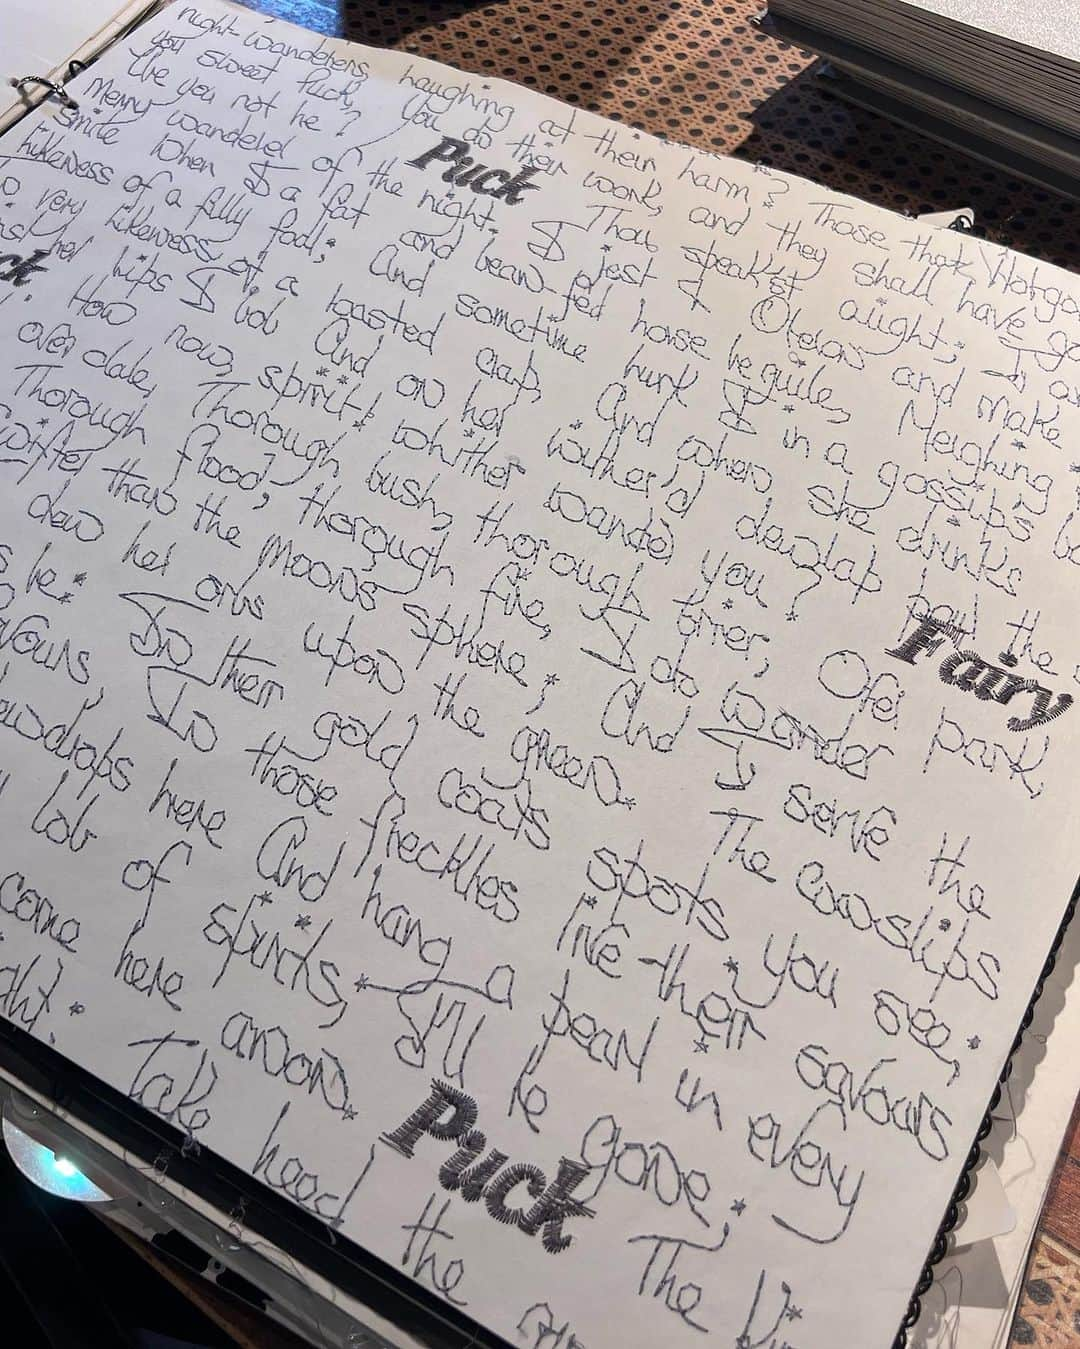 night-wanderers, laughing at their harm? Those that Hobgo
you sweet Puck, You do their work, and they shall have go
Are you not he? Puck Thou speak'st aright; I a
Merry wanderer of the night. I jest to Oberon and make
smile When I a fat and bean-fed horse beguile, Neighing
Likeness of a filly foal; And sometime lurk I in a gossip's bo
very likeness of a roasted crab, And when she drinks
her lips I bob And on her wither'd dewlap the
ck How now, spirit! whither wander you? Fairy
over dale, Thorough bush, thorough brier, Over park,
Thorough flood, thorough fire, I do wander
Swifter than the Moons sphere; And I serve the
dew her orbs upon the green. The cowslips
s he: In their gold coats spots you see;
vours, In those freckles live their savours
ewdrops here And hang a pearl in every
lob of spirits, I'll be gone;
come here anon. Puck The Ki
ght: Take heed the